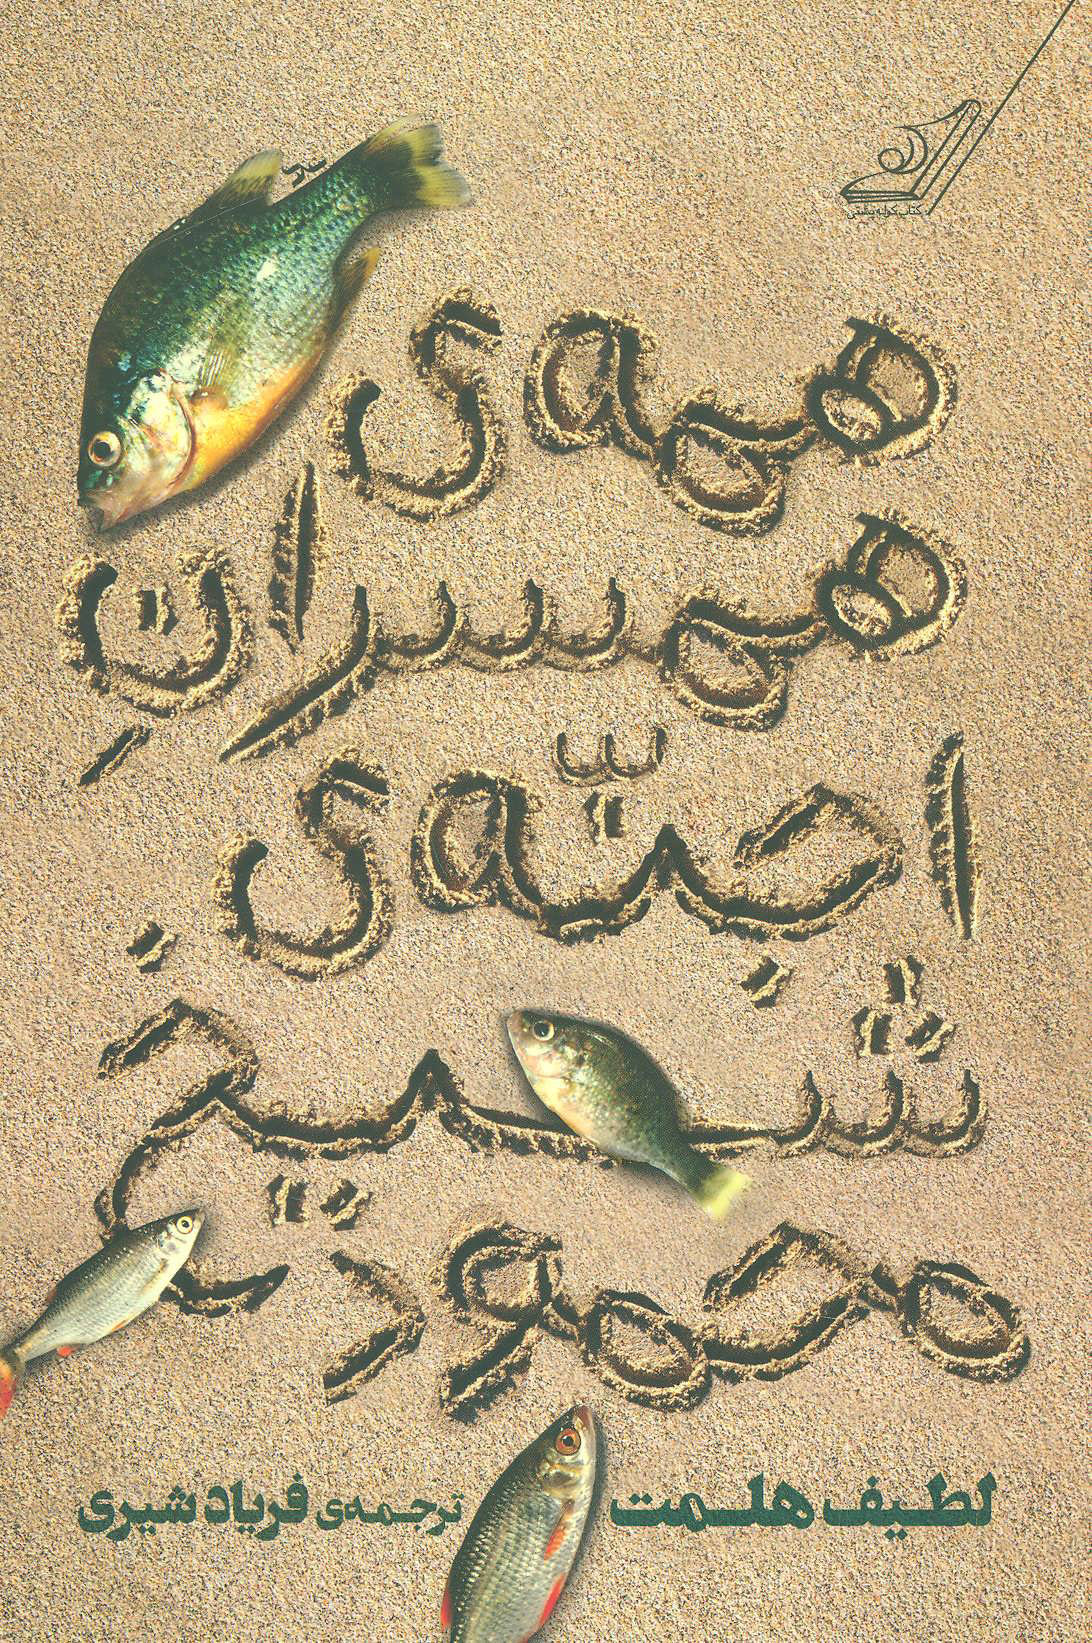 کتاب کوله پشتی
همه‌ی
همسرانِ
اجنّه‌ی
شیخ
محمود
لطیف هلمت
ترجمه‌ی فریاد شیری